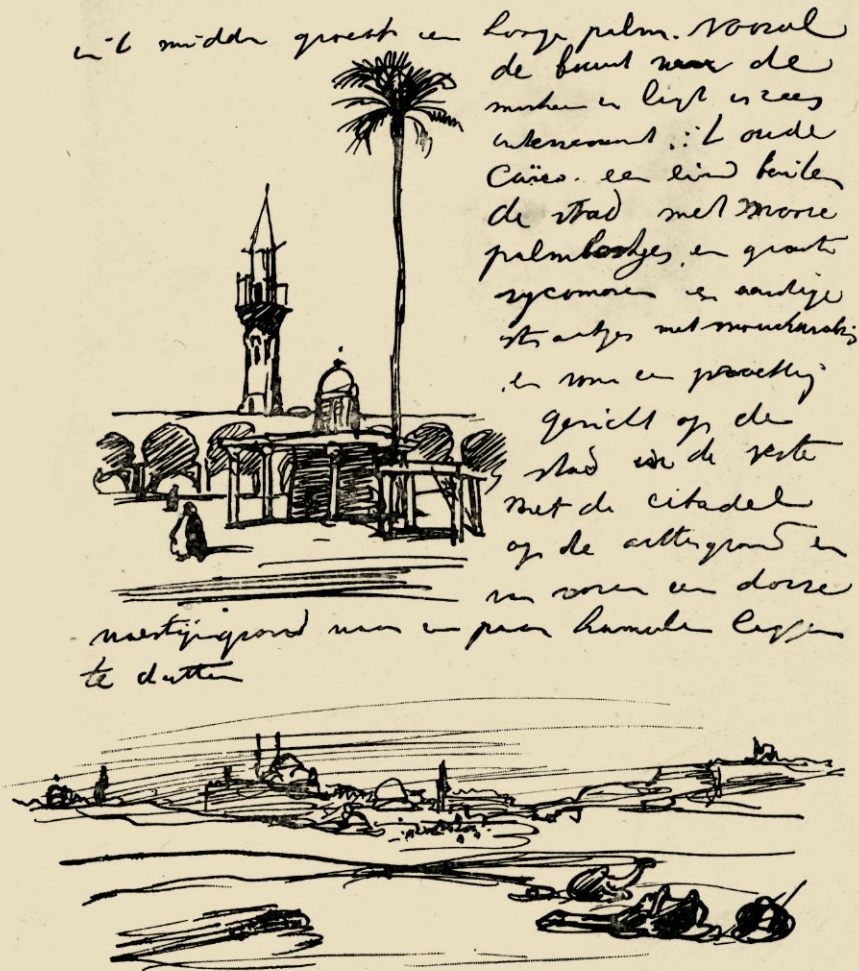 in 't midden groeit een hooge palm. Vooral
de buurt waar de
in ligt is zeer
interessant, 't oude
Caïro. een eind buiten
de stad met mooie
palmboschjes, en groote
sycomoren en aardige
straatjes met moucharabis
en een prachtig
gezicht op de
stad in de verte
met de citadel
op de achtergrond en
van voren een dorre
woestijngrond waar een paar kameelen liggen
te dutten